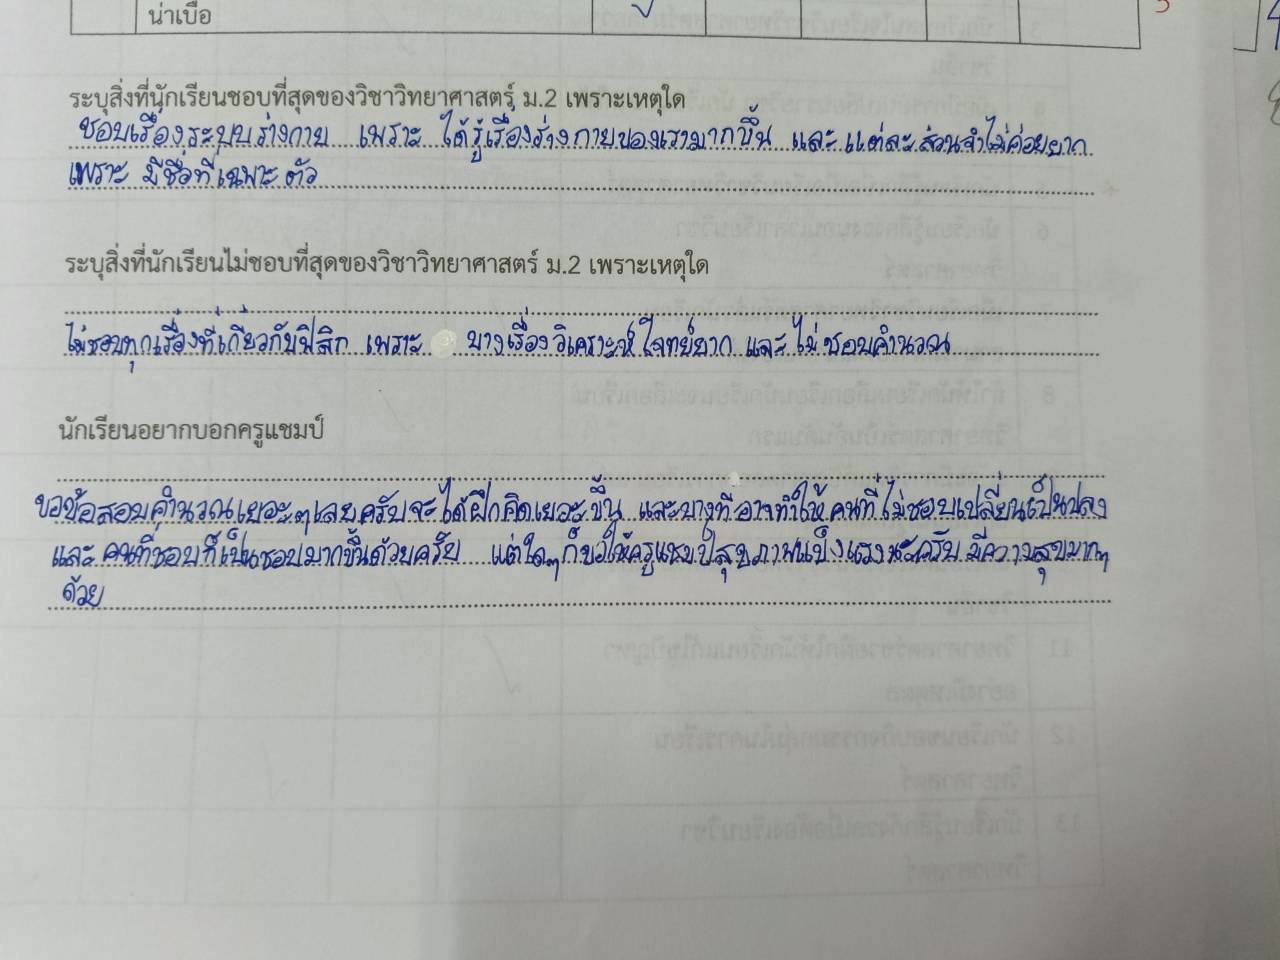 น่าเบื่อ
ระบุสิ่งที่นักเรียนชอบที่สุดของวิชาวิทยาศาสตร์ ม.2 เพราะเหตุใด
ชอบเรื่องระบบร่างกาย เพราะ ได้รู้เรื่องร่างกายของเรามากขึ้น และ แต่ละส่วนจำไม่ค่อยยาก
เพราะ มีชื่อที่เฉพาะตัว
ระบุสิ่งที่นักเรียนไม่ชอบที่สุดของวิชาวิทยาศาสตร์ ม.2 เพราะเหตุใด
ไม่ชอบทุกเรื่องที่เกี่ยวกับฟิสิก เพราะ บางเรื่องวิเคราะห์โจทย์ยาก และ ไม่ชอบคำนวณ
นักเรียนอยากบอกครูแชมป์
ขอข้อสอบคำนวณเยอะๆเลยครับจะได้ฝึกคิดเยอะขึ้น และบางทีอาจทำให้คนที่ไม่ชอบเปลี่ยนเป็นชอบ
และ คนที่ชอบก็เป็นชอบมากขึ้นด้วยครับ แต่ใดๆก็ขอให้ครูแชมป์สุขภาพแข็งแรงนะครับ มีความสุขมากๆ
ด้วย